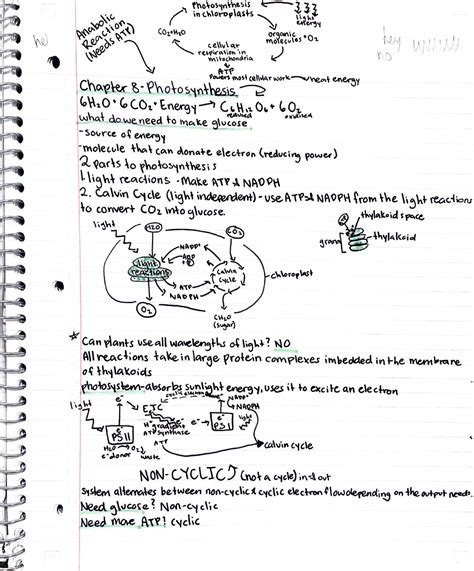 Photosynthesis
in chloroplasts
light
energy
Anabolic
Reaction
(Needs ATP)
CO2+H2O
organic
molecules + O2
cellular
respiration in
mitochondria
ATP
Powers most cellular work
heat energy
he
hey
Chapter 8 - Photosynthesis
6H2O + 6CO2 + Energy → C6H12O6 + 6O2
reduced
oxidized
what do we need to make glucose
-source of energy
-molecule that can donate electron (reducing power)
2 parts to photosynthesis
1. light reactions - Make ATP & NADPH
2. Calvin Cycle (light independent) - use ATP & NADPH from the light reactions
to convert CO2 into glucose.
light
H2O
CO2
NADP+
ADP
+ P
light
reactions
Calvin
Cycle
ATP
NADPH
chloroplast
O2
CH2O
(sugar)
thylakoid space
grana
thylakoid
Can plants use all wavelengths of light? NO
All reactions take in large protein complexes imbedded in the membrane
of thylakoids
photosystem-absorbs sunlight energy, uses it to excite an electron
light
e-
ETC
cyclic electron
e-
NADP+
NADPH
H+ gradient
ATP synthase
ATP
e-
PS II
PS I
light
H2O → O2
e- donor
waste
calvin cycle
NON-CYCLIC (not a cycle) in → out
System alternates between non-cyclic & cyclic electron flow depending on the output needs.
Need glucose? Non-cyclic
Need more ATP? cyclic